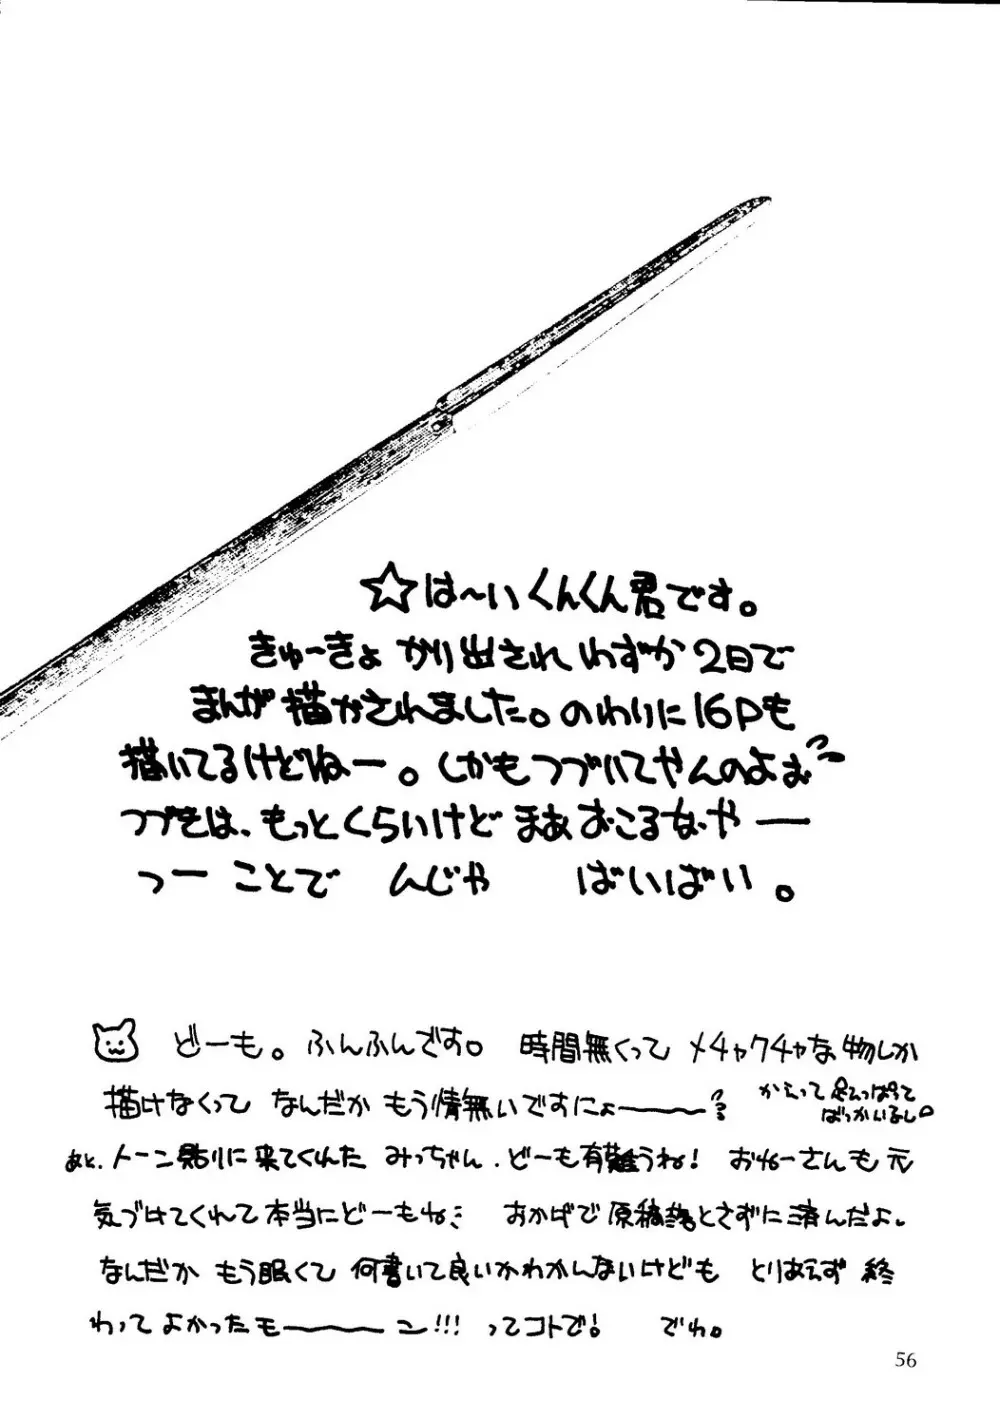 ☆は〜いくんくん君です。
きゅーきょ かり出されわずか2日で
まんが描かされました。のわりに16Pも
描いてるけどねー。しかもつづいてやんのよお
つづきは、もっとくらいけど まあおこるなや ー
っー ことで んじゃ ばいばい。
どーも。ふんふんです。 時間無くって メチャクチャな物しか
描けなくって なんだか もう情無いですにょ〜〜
かえって足ひっぱって
ばっかいるし。
あと、トーン貼りに来てくれた みっちゃん、どーも有難うね! おねーさんも元
気づけてくれて本当にどーもね おかげで原稿落とさずに済んだよ。
なんだか もう眠くて 何書いて良いかわかんないけども とりあえず 終
わって よかったモ〜〜ン!!! ってコトで! でわ。
56